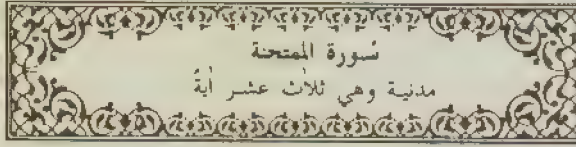 سورة الممتحنة
مدنية وهي ثلاث عشر أية